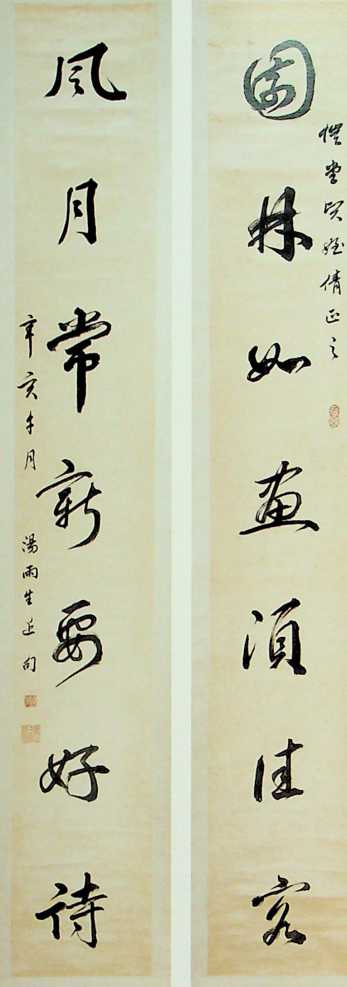 堂賢姪倩正之
園林如畫須佳客
風月常新要好詩
辛亥午月 湯雨生近句